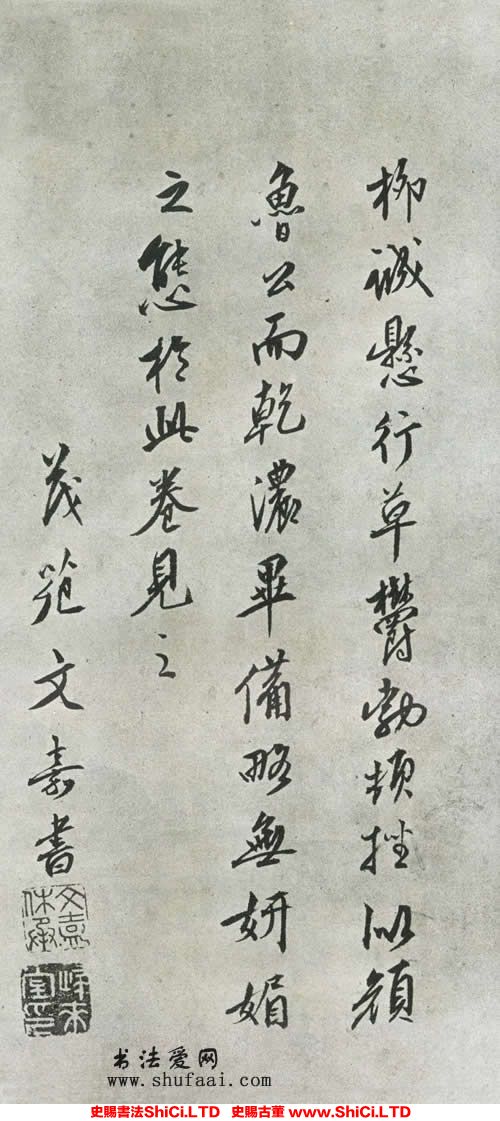 柳誠懸行草鬱勃頓挫似顏
魯公而乾濃畢備略無妍媚
之態於此卷見之
茂苑文嘉書
文嘉休承
书法爱网
www.shufaai.com
史賜書法ShiCi.LTD 史賜古董 www.ShiCi.LTD